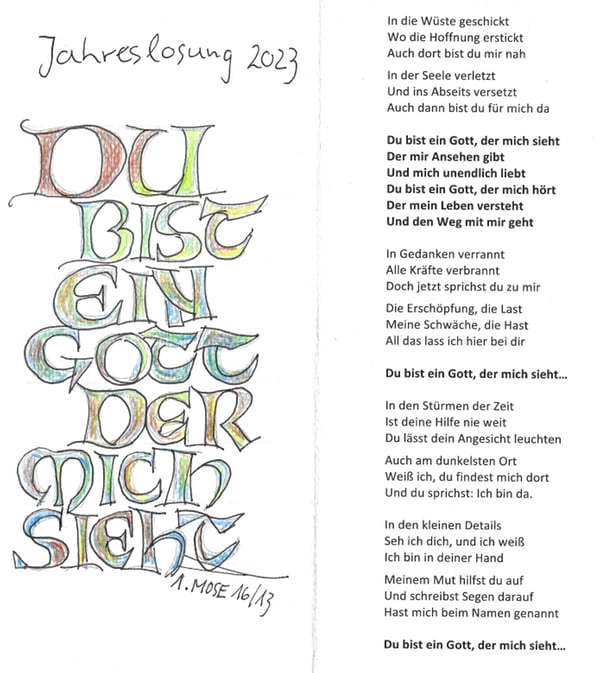 Jahreslosung 2023
DU
BIST
EIN
GOTT
DER
MICH
SIEHT
1. MOSE 16/13
In die Wüste geschickt
Wo die Hoffnung erstickt
Auch dort bist du mir nah
In der Seele verletzt
Und ins Abseits versetzt
Auch dann bist du für mich da
Du bist ein Gott, der mich sieht
Der mir Ansehen gibt
Und mich unendlich liebt
Du bist ein Gott, der mich hört
Der mein Leben versteht
Und den Weg mit mir geht
In Gedanken verrannt
Alle Kräfte verbrannt
Doch jetzt sprichst du zu mir
Die Erschöpfung, die Last
Meine Schwäche, die Hast
All das lass ich hier bei dir
Du bist ein Gott, der mich sieht…
In den Stürmen der Zeit
Ist deine Hilfe nie weit
Du lässt dein Angesicht leuchten
Auch am dunkelsten Ort
Weiß ich, du findest mich dort
Und du sprichst: Ich bin da.
In den kleinen Details
Seh ich dich, und ich weiß
Ich bin in deiner Hand
Meinem Mut hilfst du auf
Und schreibst Segen darauf
Hast mich beim Namen genannt
Du bist ein Gott, der mich sieht…